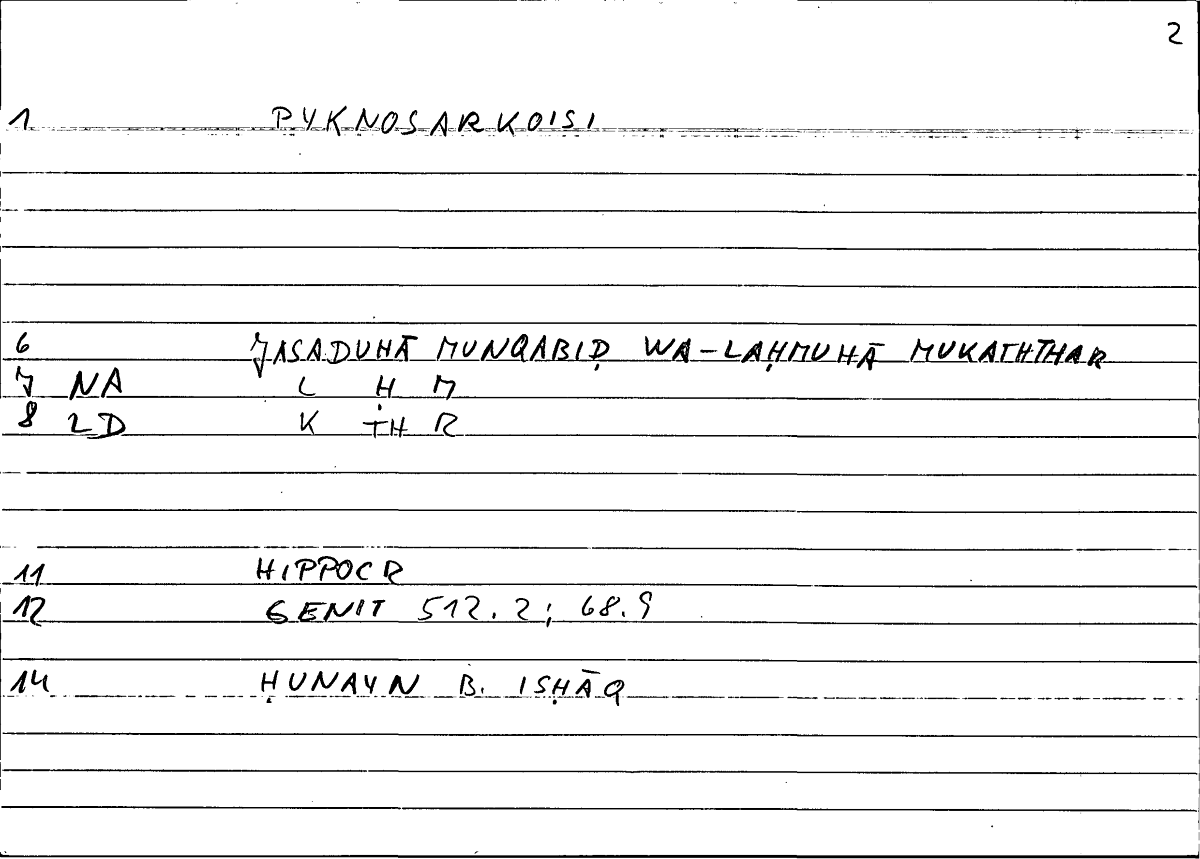 2
1 PYKNOSARKOISI
6 JASADUHĀ MUNQABIḌ WA-LAḤMUHĀ MUKATHTHAR
7 NA L Ḥ M
8 2D K TH R
11 HIPPOCR
12 GENIT 512.2; 68.9
14 ḤUNAYN B. ISḤĀQ